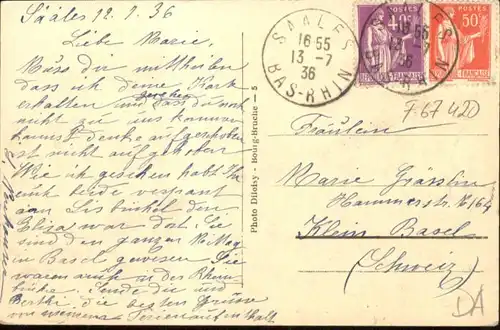 Saales 12.7.36
Liebe Marie.
Muss dir mittheilen
dass ich deine Karte
erhalten und dass du noch
gesehen
nicht zu uns kommen
kannst denke aufgeschoben
ist nicht aufgehoben
Wie ich gesehen habt Ihr
euch beide verpasst
am
Elisa war da. Sie
sind den ganzen
in Basel gewesen Sie
waren auch a der Rhein
brücke. Sende dir und
Berthi die besten Grüsse
von meinem Ferienaufenthalt
Photo Dilosky - Bourg-Bruche - 5
SAALES
16 55
13 - 7
36
BAS-RHIN
40c
POSTES FRANÇAISE
50c
F-67420
Fräulein
Marie Grässlin
Hammerstr. 164
Klein Basel
(Schweiz)
DA